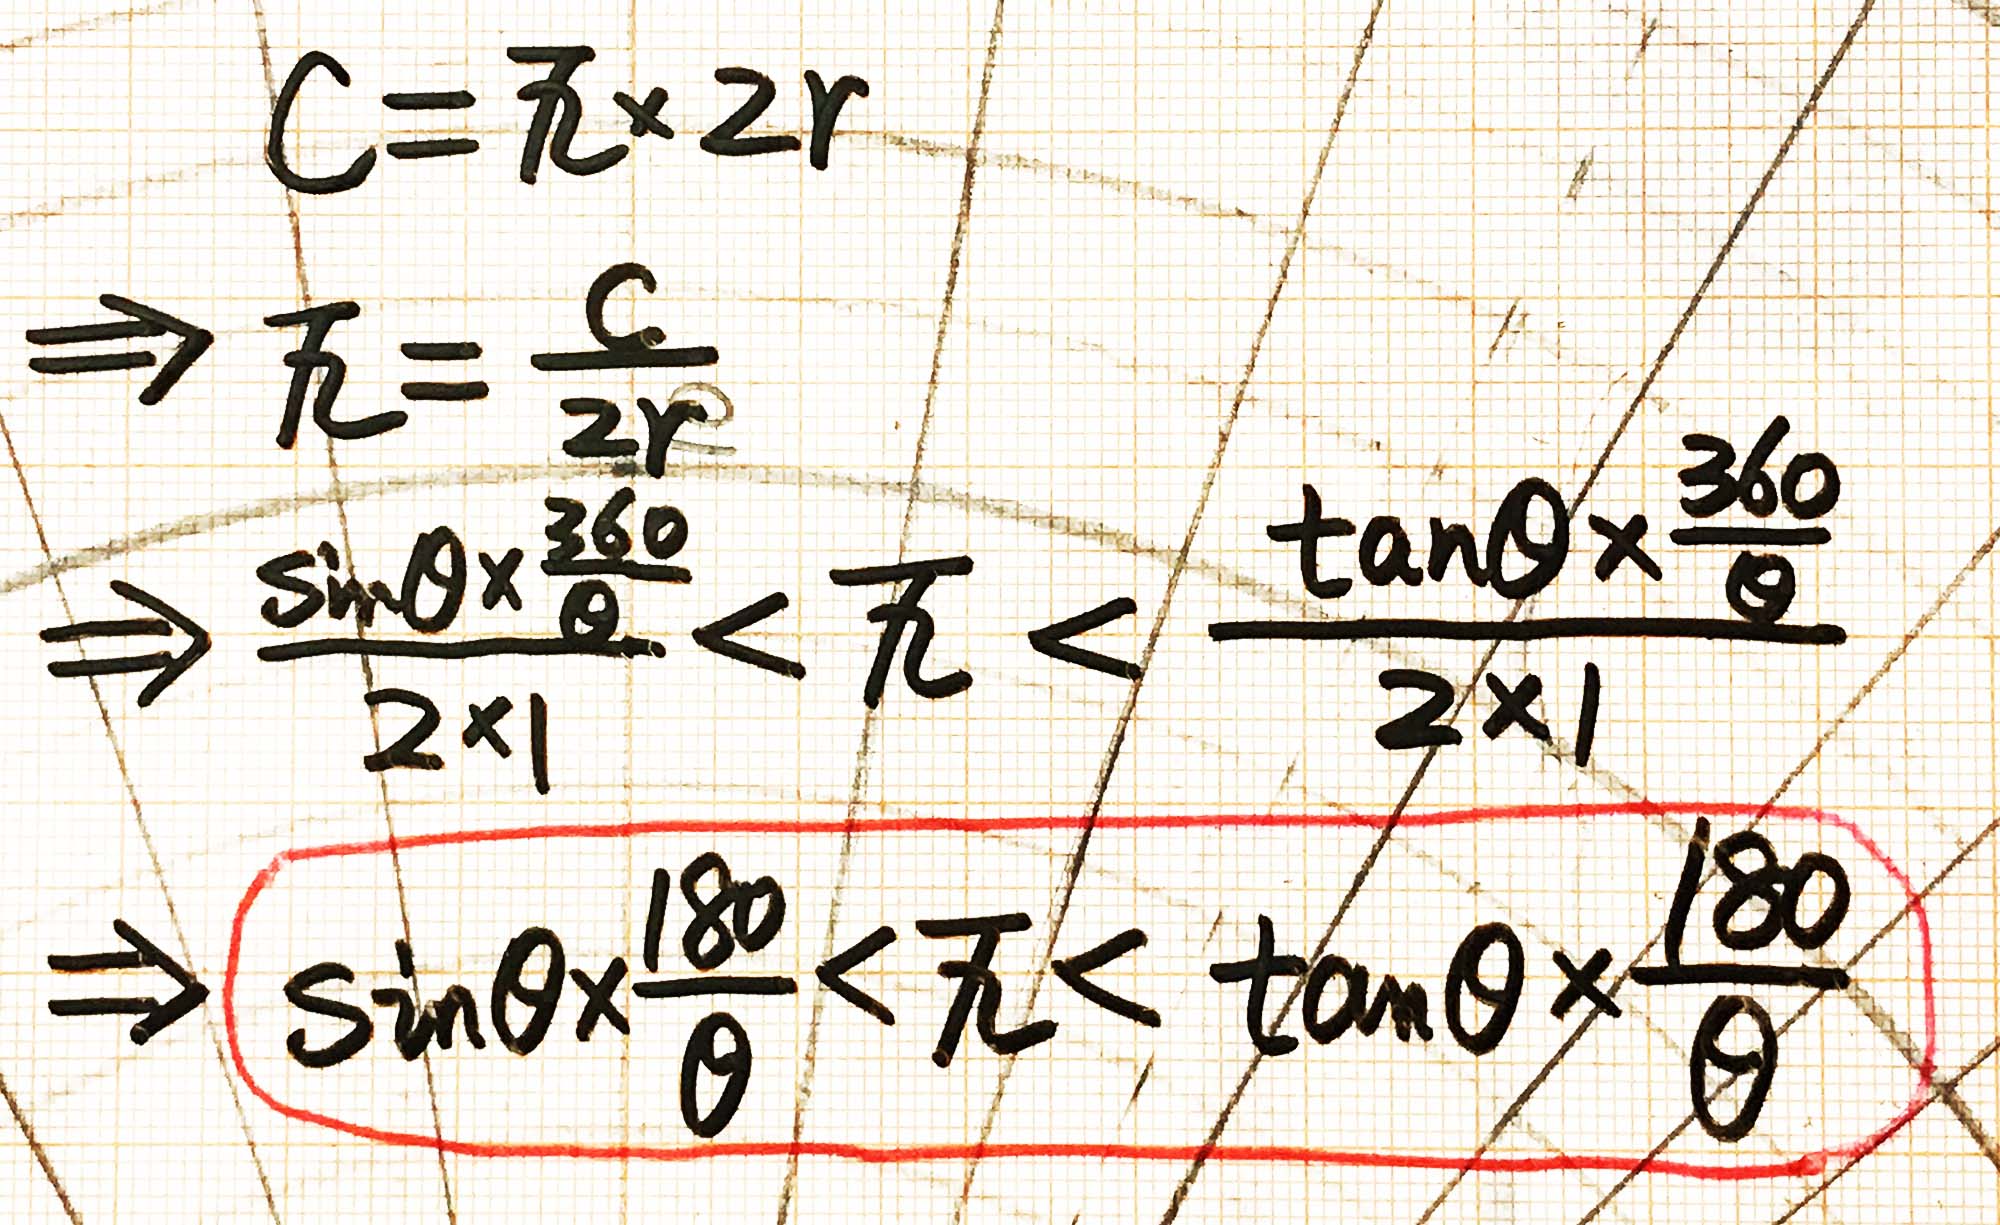 C = π × 2r
⇒ π = C/2r
⇒ (sinθ × 360/θ)/(2 × 1) < π < (tanθ × 360/θ)/(2 × 1)
⇒ sinθ × 180/θ < π < tanθ × 180/θ